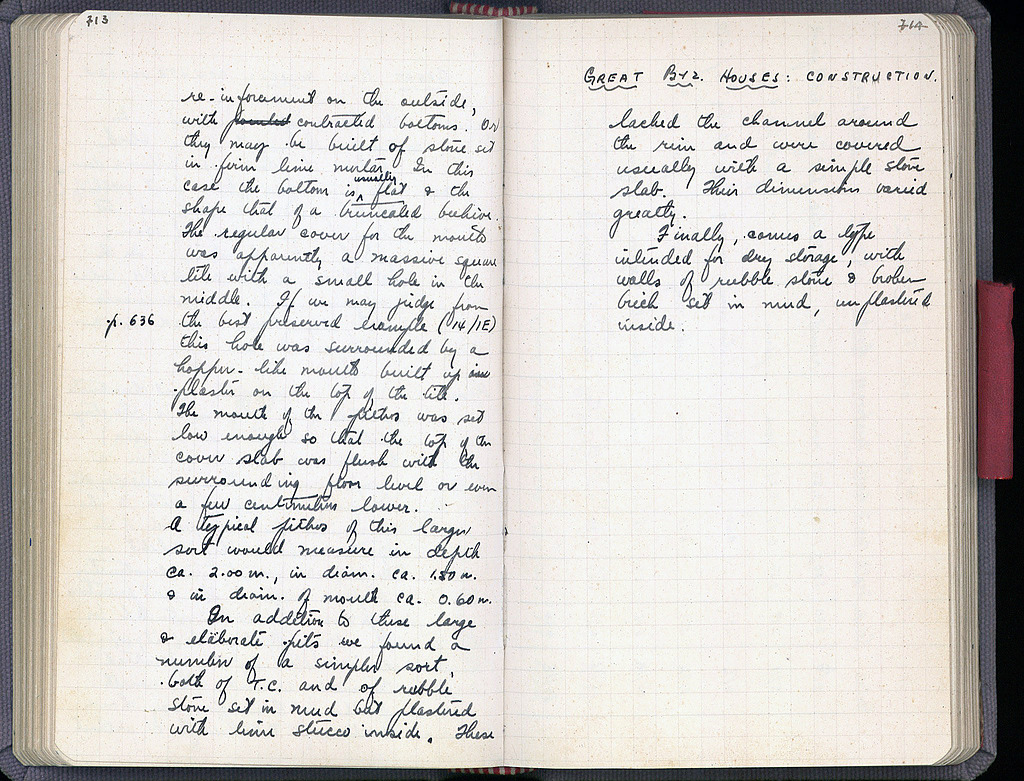 713
re-inforcement on the outside,
with pointed contracted bottoms. Or
they may be built of stone set
in firm lime mortar. In this
case the bottom is usually flat & the
shape that of a truncated beehive.
The regular cover for the mouth
was apparently a massive square
tile with a small hole in the
middle. If we may judge from
p. 636 the best preserved example (14/1E)
this hole was surrounded by a
hopper-like mouth built up in
plaster on the top of the tile.
The mouth of the pithos was set
low enough so that the top of the
cover slab was flush with the
surrounding floor level or even
a few centimeters lower.
A typical pithos of this larger
sort would measure in depth
ca. 2.00 m., in diam. ca. 1.50 m.
& in diam. of mouth ca. 0.60 m.
In addition to these large
& elaborate pits we found a
number of a simpler sort,
both of T.C. and of rubble
stone set in mud but plastered
with lime stucco inside. These
714
GREAT BYZ. HOUSES: CONSTRUCTION.
lacked the channel around
the rim and were covered
usually with a simple stone
slab. Their dimensions varied
greatly.
Finally, comes a type
intended for dry storage, with
walls of rubble stone & broken
brick set in mud, unplastered
inside.